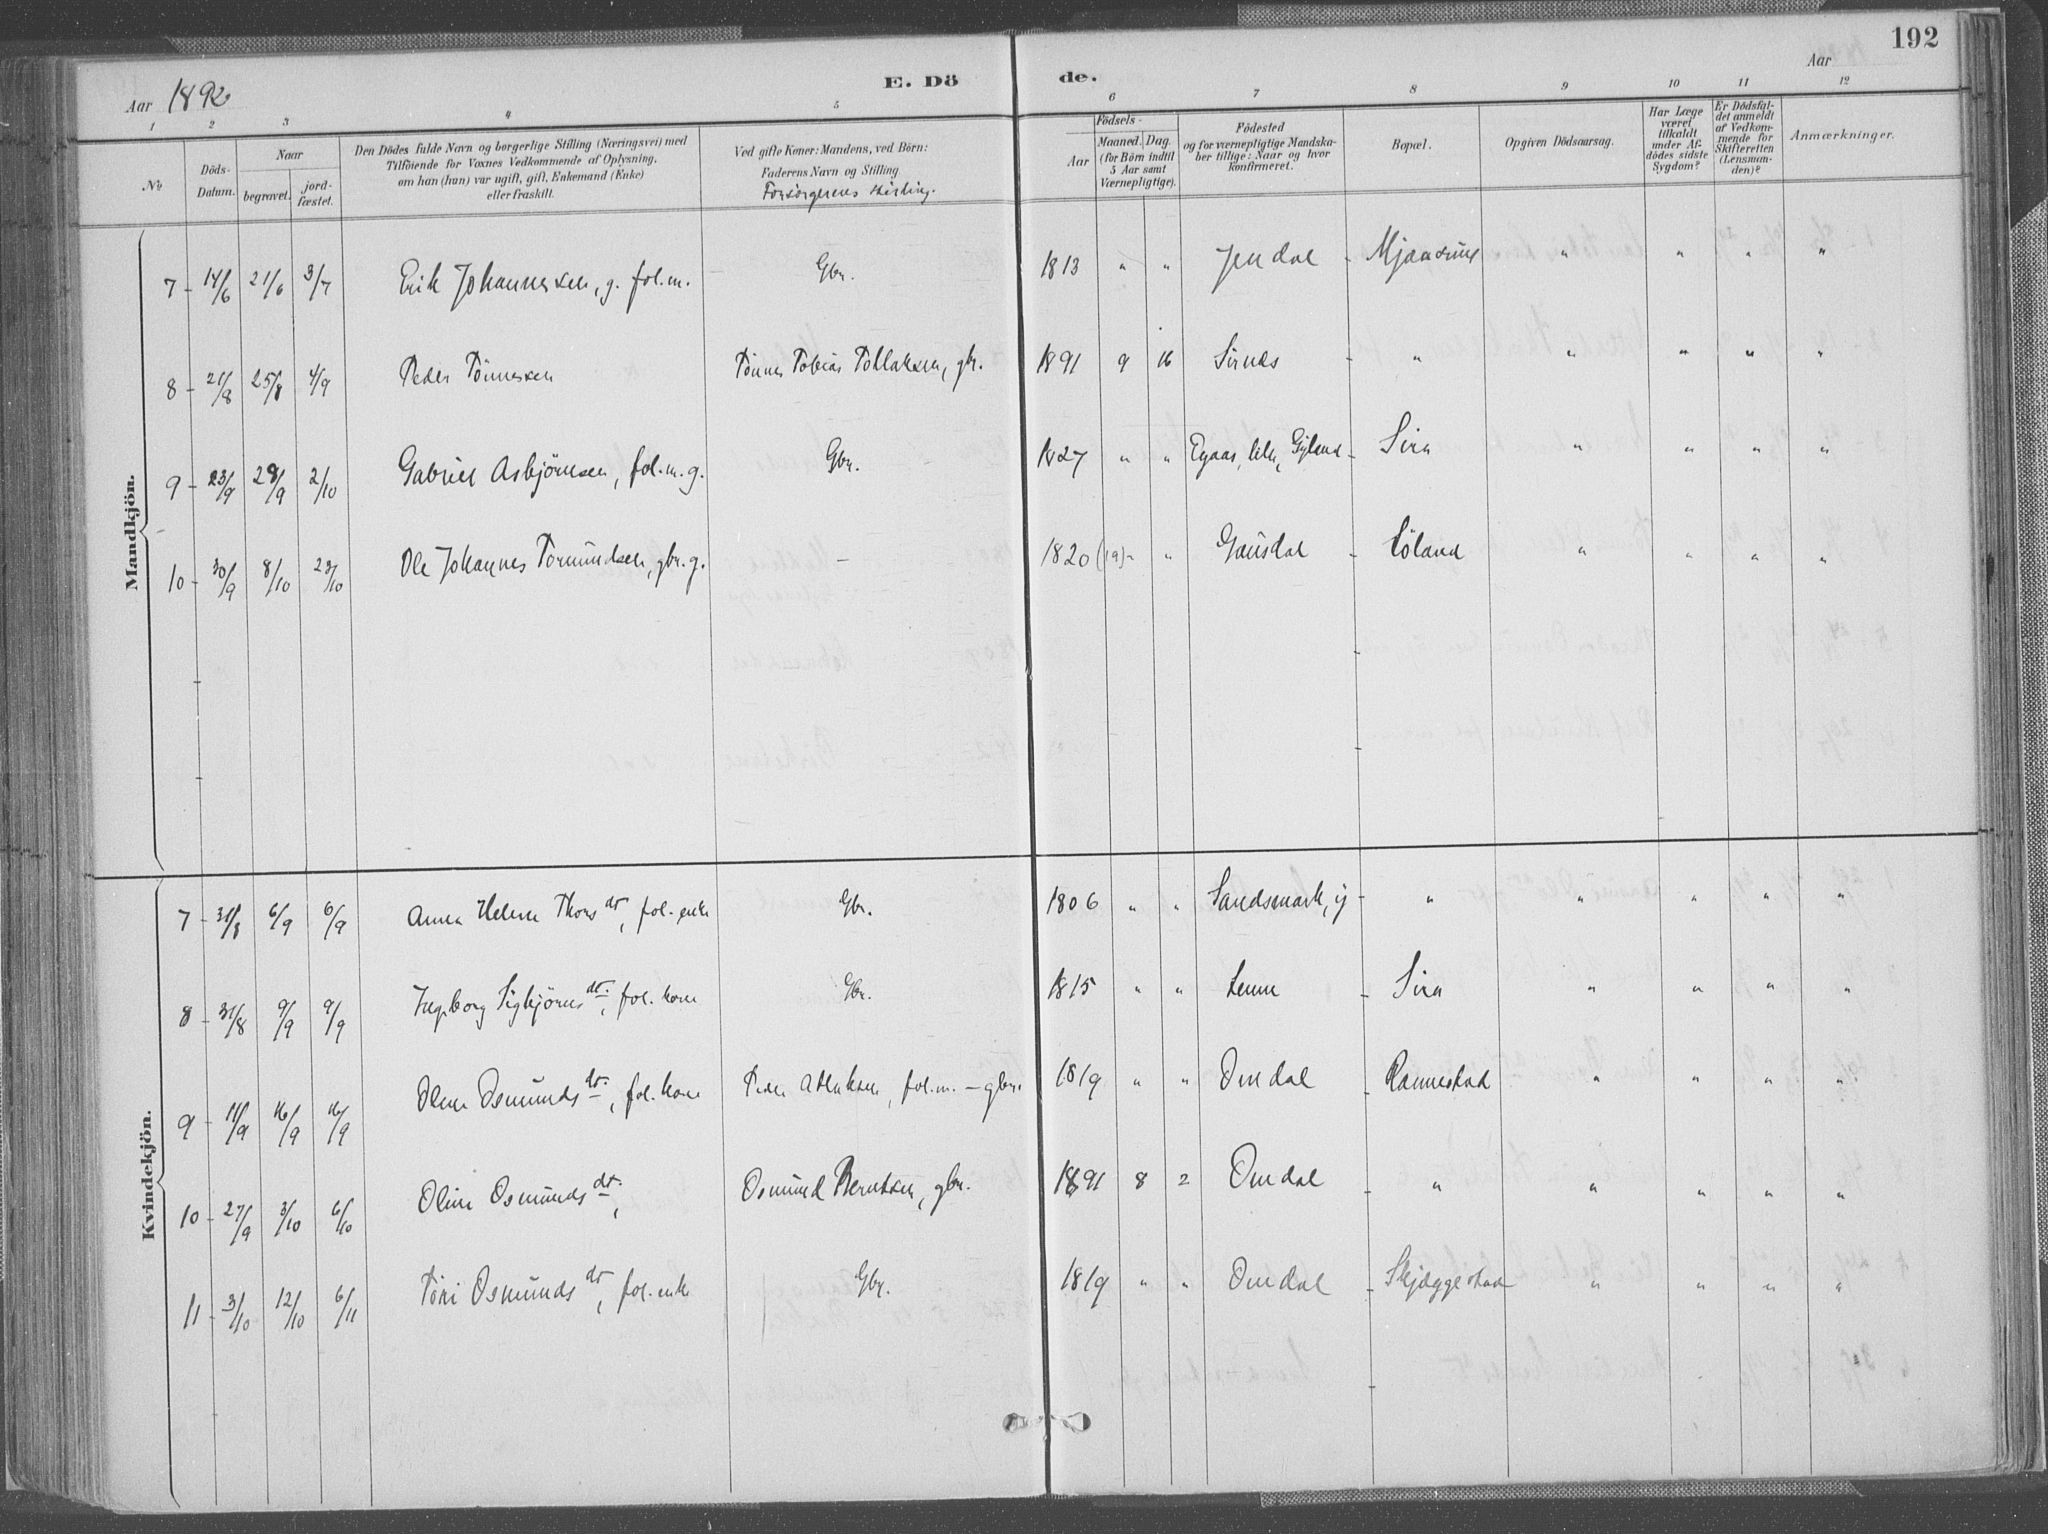 192
Aar 1892 E. Dö de. Aar
1 2 3 4 5 6 7 8 9 10 11 12
No
Döds-Datum.
Naar
begravet.
jord-fæstet.
Den Dödes fulde Navn og borgerlige Stilling (Næringsvei) med
Tilföiende for Voxnes Vedkommende af Oplysning,
om han (hun) var ugift, gift, Enkemand (Enke)
eller fraskilt.
Ved gifte Koner: Mandens, ved Börn:
Faderens Navn og Stilling
Forsörgerens Stilling.
Födsels-
Aar
Maaned. Dag.
(for Börn indtil
5 Aar samt
Værnepligtige).
Födested
og for værnepligtige Mandska-
ber tillige: Naar og hvor
konfirmeret.
Bopæl.
Opgiven Dödsaarsag.
Har Læge
været
tilkaldt
under Af-
dödes sidste
Sygdom?
Er Dödsfal-
det anmeldt
af Vedkom-
mende for
Skifteretten
(Lensman-
den)?
Anmærkninger.
Mandkjön.
7 - 14/6 21/6 3/7 Erik Johannessen, g. fol.m. Gbr. 1813 " " Jendal - " " " "
8 - 21/8 25/8 4/9 Peder Tönnessen Tönnes Tobias Tollaksen, gbr. 1891 9 16 Sirnes - " " " " "
9 - 23/9 28/9 2/10 Gabriel Asbjörnsen, fol.m. g. Gbr. 1827 " " lille, Gyland - Sira " " " "
10 - 30/9 8/10 23/10 Ole Johannes Tormundsen, gbr. g. - 1820 (19) - " Gausdal - Löland " " " "
Kvindekjön.
7 - 31/8 6/9 6/9 Anna Helene Thorsdt, fol. enke Gbr. 1806 " " Sandsmark, y - " " " " "
8 - 31/8 9/9 9/9 Ingeborg Sigbjörnsdt., fol. kone Gbr. 1815 " " - Sira " " " "
9 - 11/9 16/9 16/9 Oline Osmundsdt., fol. kone Peder Atlaksen, fol.m. - gbr. 1819 " " Omdal - Rannestad " " " "
10 - 27/9 3/10 6/10 Oline Osmundsdt., Osmund Berntsen, gbr. 1891 8 2 Omdal - " " " " "
11 - 3/10 12/10 6/11 Töri Osmundsdt, fol. enke Gbr. 1819 " " Omdal - Skjæggestad " " " "